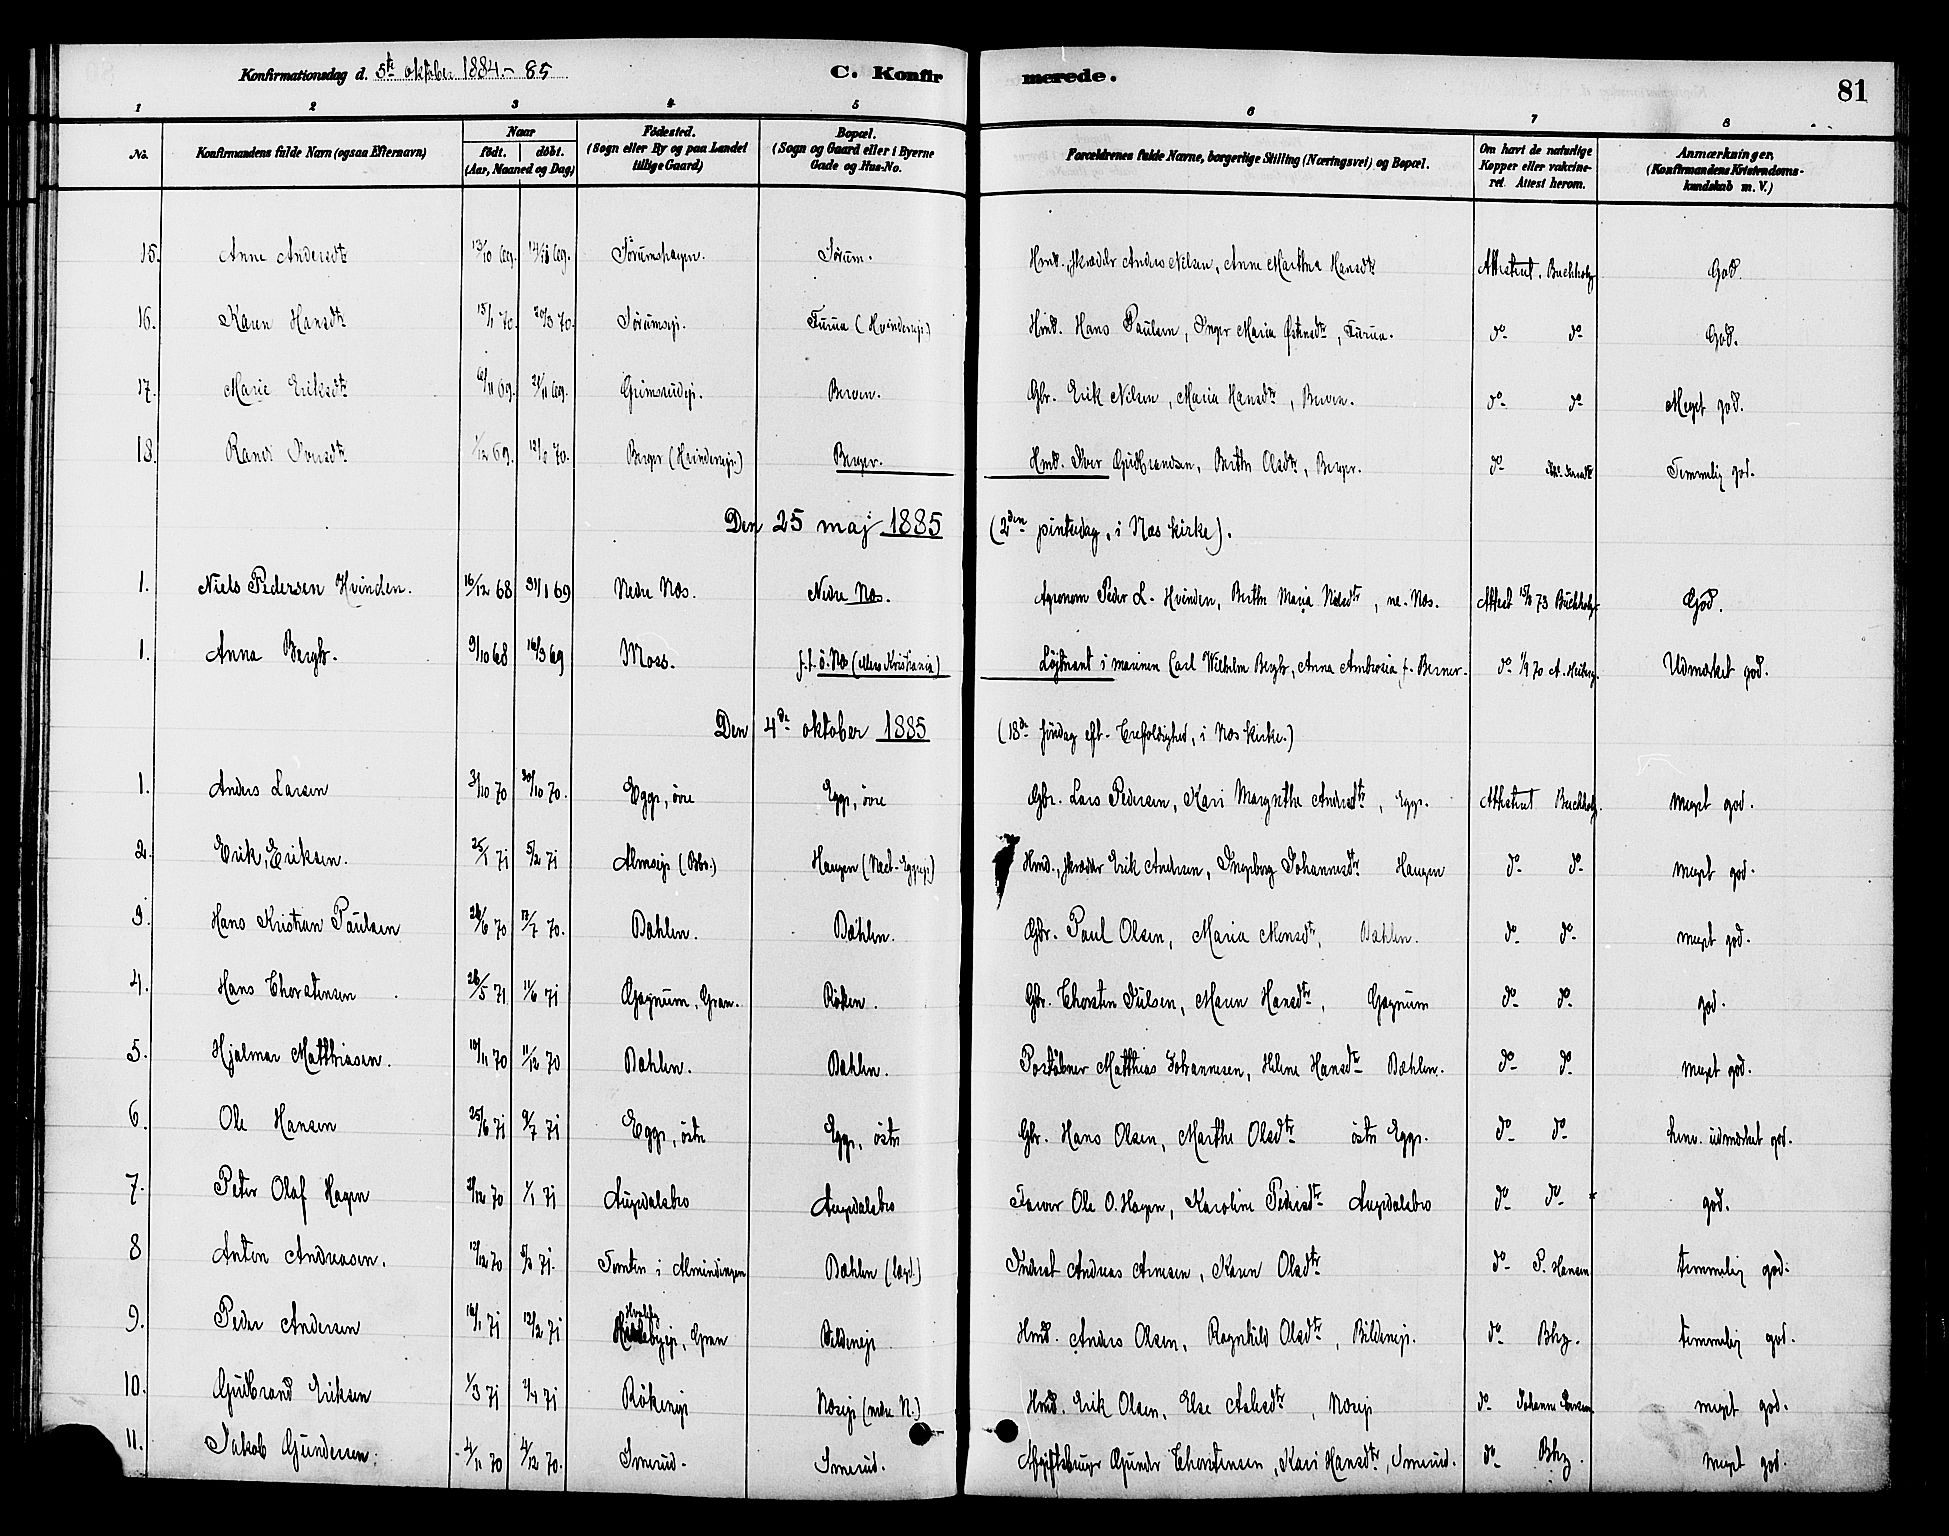 Konfirmationsdag d. 5te oktober 1884.- 85 C. Konfirmerede. 81
1 2 3 4 5 6 7 8
No. Konfirmandens fulde Navn (ogsaa Efternavn) Naar født. døbt. (Aar, Maaned og Dag) Fødested. (Sogn eller By og paa Landet tillige Gaard) Bopæl. (Sogn og Gaard eller i Byerne Gade og Hus-No. Forældrenes fulde Navne, borgerlige Stilling (Næringsvei) og Bopæl. Om havt de naturlige Kopper eller vaksineret. Attest herom. Anmærkninger, (Konfirmandens Kristendomskundskab m. V.)
15. Anne Andersdtr 13/10 69. Sørumshagen. Sørum. Hmd., skrædder Anders Nilsen, Anne Marthea Hansdtr Attesteret. Buchholz God.
16. Karen Hansdtr 15/1 70. 20/3 70. Sørumsejr. Furua (Hvindensejr.) Hmd. Hans Paulsen, Inger Maria Østensdtr, Furua. do do God.
17. Marie Eriksdtr 6/11 69. 21/11 69. Grimsrudejr. Berven. Gbr. Erik Nilsen, Maria Hansdtr, Berven. do- do Meget god.
18. Randi Iversdtr 1/12 69. 70. Berger (Hvindensejr.) Berger. Hmd. Iver Gudbrandsen, Berthe Olsdtr, Berger. do Temmelig god.
Den 25 maj 1885 (2den pintsedag, i Næs kirke).
1. Niels Pedersen Hvinden. 16/12 68 31/1 69 Nedre Næs. Nedre Næs. Agronom Peder L. Hvinden, Berthe Maria Nielsdtr, ne. Næs. Attest 15/8 73 Buchholz God.
1. Anna Bergh. 9/10 68 16/3 69 Moss. f. t. ö. Næs (ellers Kristiania) Løjtnant i marinen Carl Wilhelm Bergh, Anna Ambrosia f. Berner. do 1/9 70 A. Heiberg. Udmærket god.
Den 4de oktober 1885 (18de søndag eft. Trefoldighed, i Næs kirke.)
1. Anders Larsen 3/10 70 30/10 70. Egge, övre Egge, övre Gbr. Lars Pedersen, Kari Margrethe Andersdtr, Egge. Attesteret Buchholz. meget god.
2. Erik Eriksen. 25/1 71 5/2 71 Almsejr (Bbr.) Haugen (Næst-Eggeejr.) Hmd., skrædder Erik Andersen, Ingeborg Johannesdtr Haugen do do- meget god.
3. Hans Kristian Paulsen 28/6 70 17/7 70. Dæhlen. Dæhlen. Gbr. Paul Olsen, Maria Monsdtr, Dæhlen. do- do- meget god.
4. Hans Thorstensen 28/5 71 11/6 71 Gagnum, Gran. Röken. Gbr. Thorsten Iulsen, Maren Hansdtr, Gagnum do- do- god.
5. Hjalmar Matthiasen. 10/11 70 11/12 70 Dæhlen. Dæhlen. Postaabner Matthias Johannesen, Helene Hansdtr Dæhlen. do- do- meget god.
6 Ole Hansen 25/6 71 9/7 71 Egge, östre Egge, östre Gbr. Hans Olsen, Marthe Olsdtr östre Egge. do- do- henv. udmærket god.
7. Peter Olaf Hagen 2/12 70 1/1 71 Augedalsbro Augedalsbro Farver Ole O. Hagen, Karoline Pedersdtr Augedalsbro do- do- god.
8 Anton Andreasen. 12/12 70 5/3 71. Tomten i Almindingen Dæhlen (lægd.) Inderst Andreas Arnesen, Karen Olsdtr do- P. Hansen temmelig god.
9. Peder Andersen 16/1 71 12/2 71 Hvalebyejr, Gran Bildenejr Hmd. Anders Olsen, Ragnhild Olsdtr, Bildenejr. do- Bhz. temmelig god.
10. Gudbrand Eriksen 1/3 71 2/4 71 Rökenejr Næsejr (nedre N.) Hmd. Erik Olsen, Else Aslesdtr, Næsejr do- Johanne meget god.
11. Jakob Gundersen. 4/11 70 4/12 70. Smerud. Smerud. Afgiftsbruger Gunder Thorstensen, Kari Hansdtr, Smerud. do- Bhz. meget god.